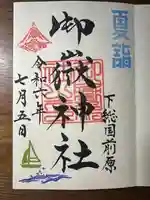 夏詣
下総国前原
御嶽神社
令和六年
七月五日